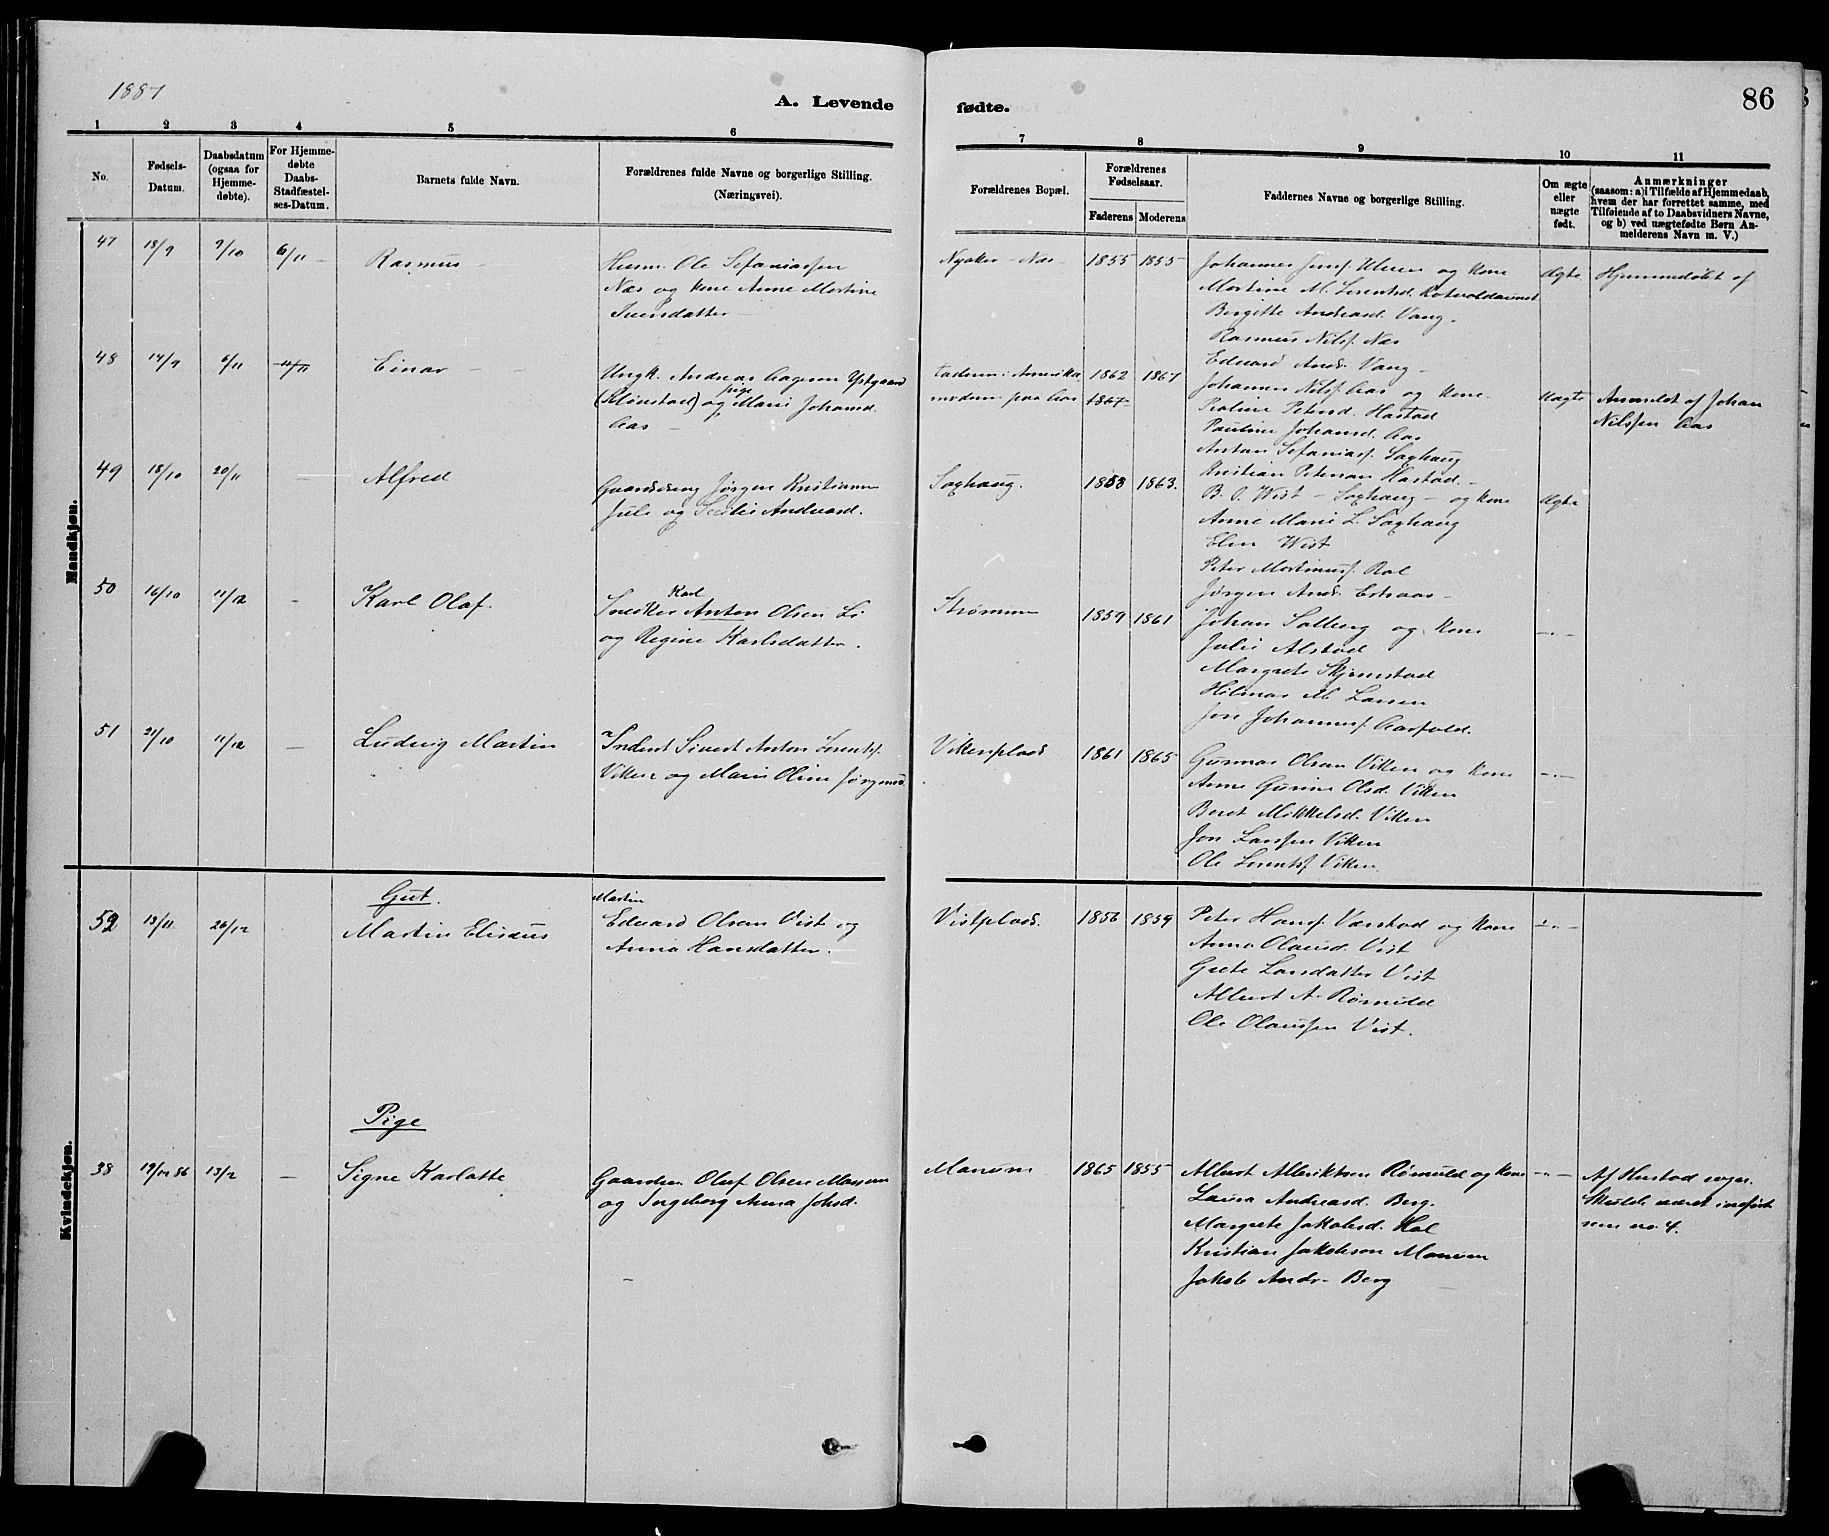 1887
A. Levende
fødte.
86
1 2 3 4 5 6 7 8 9 10 11
No.
Fødsels-
Datum.
Daabsdatum
(ogsaa for
Hjemme-
døbte).
For Hjemme-
døbte
Daabs-
Stadfæstel-
ses-Datum.
Barnets fulde Navn.
Forældrenes fulde Navne og borgerlige Stilling.
(Næringsvei).
Forældrenes Bopæl.
Forældrenes
Fødselsaar.
Faderens Moderens
Faddernes Navne og borgerlige Stilling.
Om ægte
eller
uægte
født.
Anmærkninger
(saasom: a) i Tilfælde af Hjemmedaab,
hvem der har forrettet samme, med
Tilføiende af to Daabsvidners Navne,
og b) ved uægtefødte Børn An-
melderens Navn m. V.)
Mandkjøn.
47 18/9 9/10 6/11 - Rasmus -
Husm. Ole Sefaniassen
Næs og kone Anne Martine
Iversdatter -
Nyaker - Næs - 1855 1855
Johannes Jensf. Ulven og kone
Martine M. Lorentsd.
Birgitte Andreasd. Vang.
Rasmus Nilsf. Næs
Edvard Andr. Vang -
Ægte Hjemmedøbt af
48 14/9 6/11 11/11 Einar - -
Ungk. Andreas Aagesen Ystgaard
(Klønstad) og pige Marie Johansd.
Aas -
Faderen i Amerika 1862 1867
moderen paa Aas 1867
Johannes Nilsf. Aas og kone
Petersd. Hastad
Pauline Johansd. Aas
Anton Sefaniasf. Saxhaug
Kristian Peterson Hastad -
Uægte Anmeldt af Johan
Nilssen Aas
49 18/10 20/11 - Alfred
Jørgen Kristiansen
Jule og Andreasd.
Saxhaug. 1858 1863.
B. O. Wist - Saxhaug - og kone
Anne Marie L. Saxhaug
Elen Wist
Peter Martinusf. Rol
Jørgen Andr.
Ægte
50 16/10 11/12 - Karl Olaf.
Karl
Snedker Anton Olsen Li
og Regine Karlsdatter.
Strømmen 1859 1861
Johan Salberg og kone
Julie Alstad
Margrete Skjerstad
Hilmar M. Larsen
Jon Johannesf. Aasfald.
-"-
51 21/10 11/12 - Ludvig Martin
Inderst Sivert Anton Lorentsf.
Viken og Marie Oline Jørgensd.
Vikenplads 1861 1865
Gunnar Olsen Vikken og kone
Anne Gurine Olsd. Vikken
Beret Mikkelsd. Vikken
Jon Larssen Vikken
Ole Lorentsf. Vikken
-"-
Gut.
52 13/11 26/12 Martin Eliseus
Martin
Edvard Olsen Vist og
Anna Hansdatter.
Vistplads. 1856 1859
Peter Hansf. Værstad og kone
Anna Olausd. Vist
Grete Larsdatter Vist
Albert A. Rømuld
Ole Olaussen Vist.
-"-
Kvindekjøn.
Pige
38 19/12 86 13/2 - Signe Karlotte
Gaardm. Oluf Olsen Manum
og Ingeborg Anna Johsd.
Manum 1865 1855
Albert Albriktsen Rømuld og kone
Laura Andreasd. Berg.
Margrete Jakobsd. Hol
Kristian Jakobson Manum
Jakob Andr. Berg
-"-
Af Hustad sogn.
Skulde været indført
som no. 4.